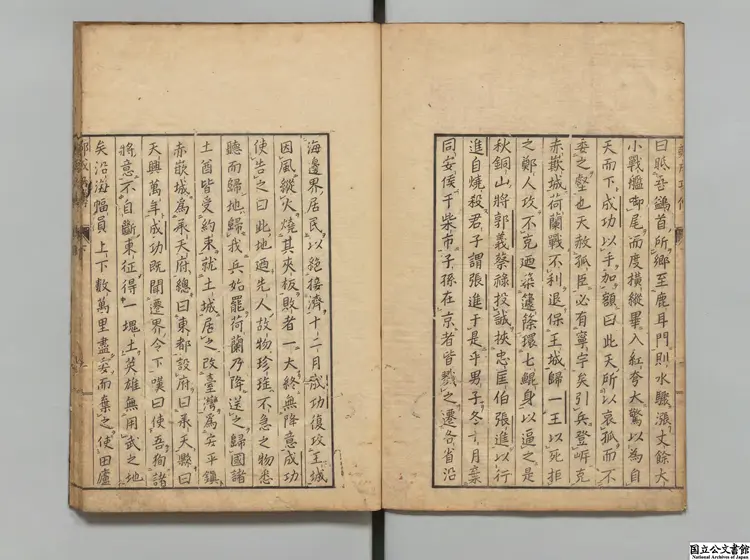 曰眂吾鷁首所鄉至鹿耳門則水驟漲丈餘大
小戰艦啣尾而度橫縱畢入紅夸大驚以為自
天而下成功以手加額曰此天所以哀孤而不
委之壑也天赦孤臣必有寧宇矣引兵登岍克
赤嵌城荷蘭戰不利退保王城歸一王以死拒
之鄭人攻不克迺築籧篨環七鯤身以逼之是
秋銅山將郭義蔡祿投誠挾忠匡伯張進以行
進自燒殺君子謂張進于是乎男子冬十月棄
同安侯于柴市子孫在京者皆戮之遷各省沿
海邊界居民以絕接濟十二月成功復攻王城
因風縱火燒其夾板敗者一大終無降意成功
使告之曰此地迺先人故物珍瑤不急之物悉
聽而歸地歸我兵始罷荷蘭乃降送之歸國諸
土酋皆受約束就土城居之改臺灣為安平鎮
赤嵌城為承天府總曰東都設府曰承天縣曰
天興萬年成功既聞遷界令下嘆曰使吾徇諸
將意不自斷東征得一塊土英雄無用武之地
矣沿海幅員上下數萬里盡妄而棄之使田廬
国立公文書館
National Archives of Japan